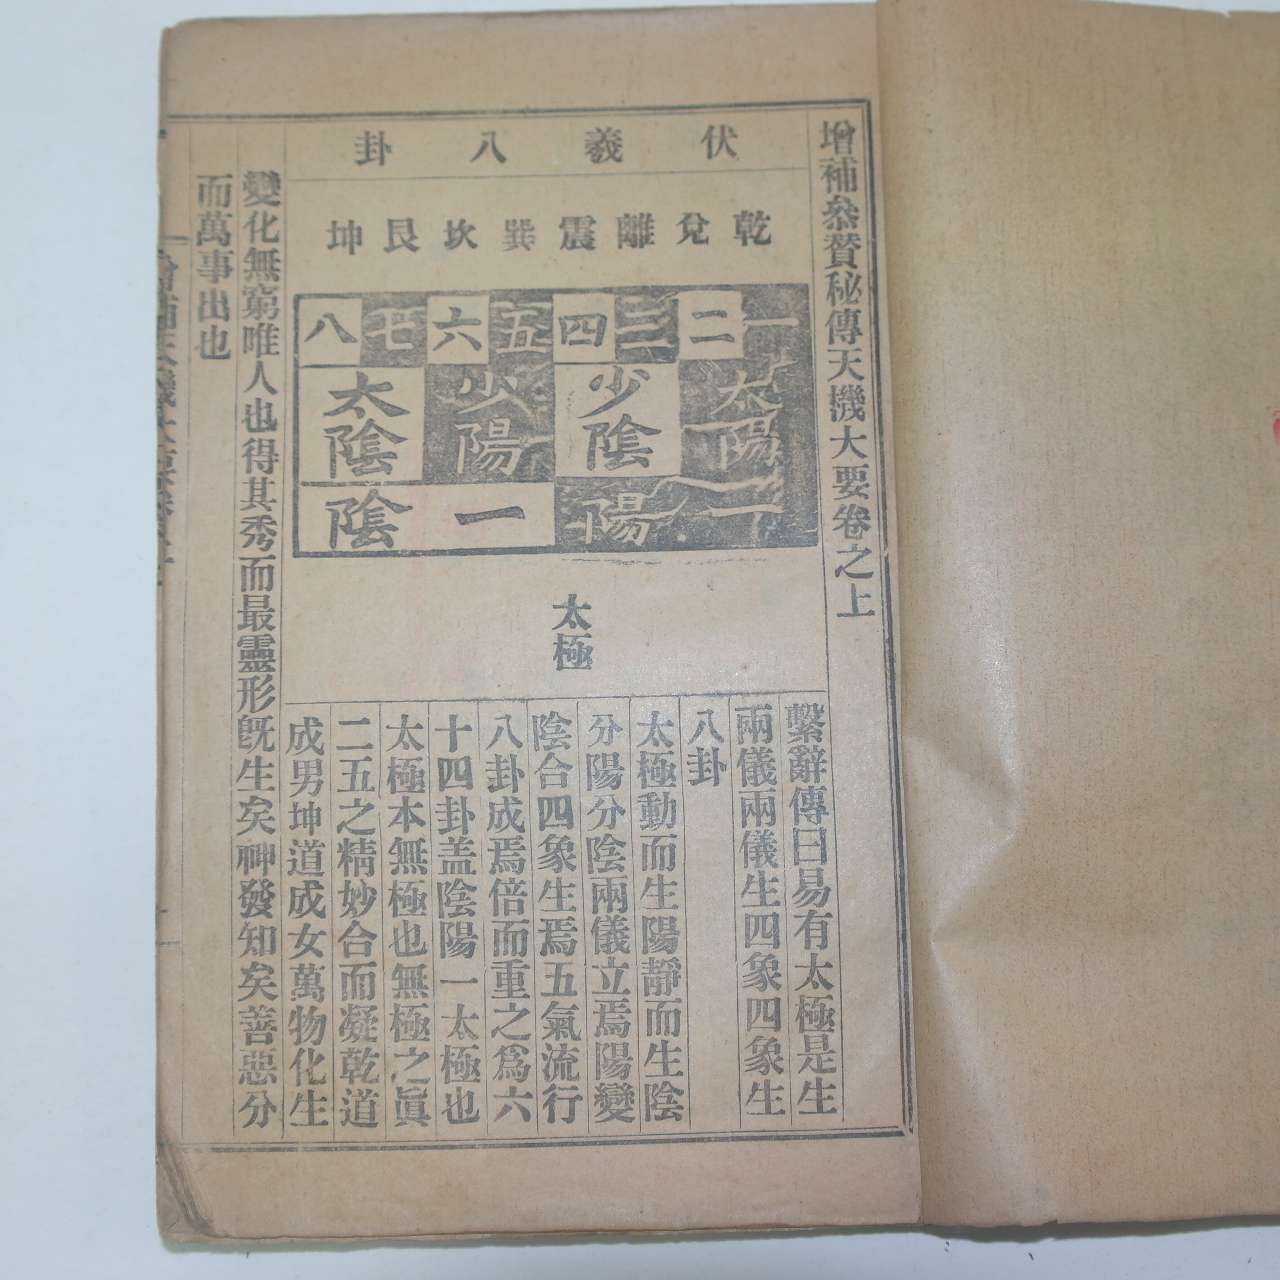 增補叅贊秘傳天機大要卷之上
伏羲八卦
乾兌離震巽坎艮坤
一二三四五六七八
太陽
少陰
少陽
太陰
一陽
一陰
太極
繫辭傳曰易有太極是生
兩儀兩儀生四象四象生
八卦
太極動而生陽靜而生陰
分陽分陰兩儀立焉陽變
陰合四象生焉五氣流行
八卦成焉倍而重之爲六
十四卦盖陰陽一太極也
太極本無極也無極之眞
二五之精妙合而凝乾道
成男坤道成女萬物化生
變化無窮唯人也得其秀而最靈形旣生矣神發知矣善惡分
而萬事出也